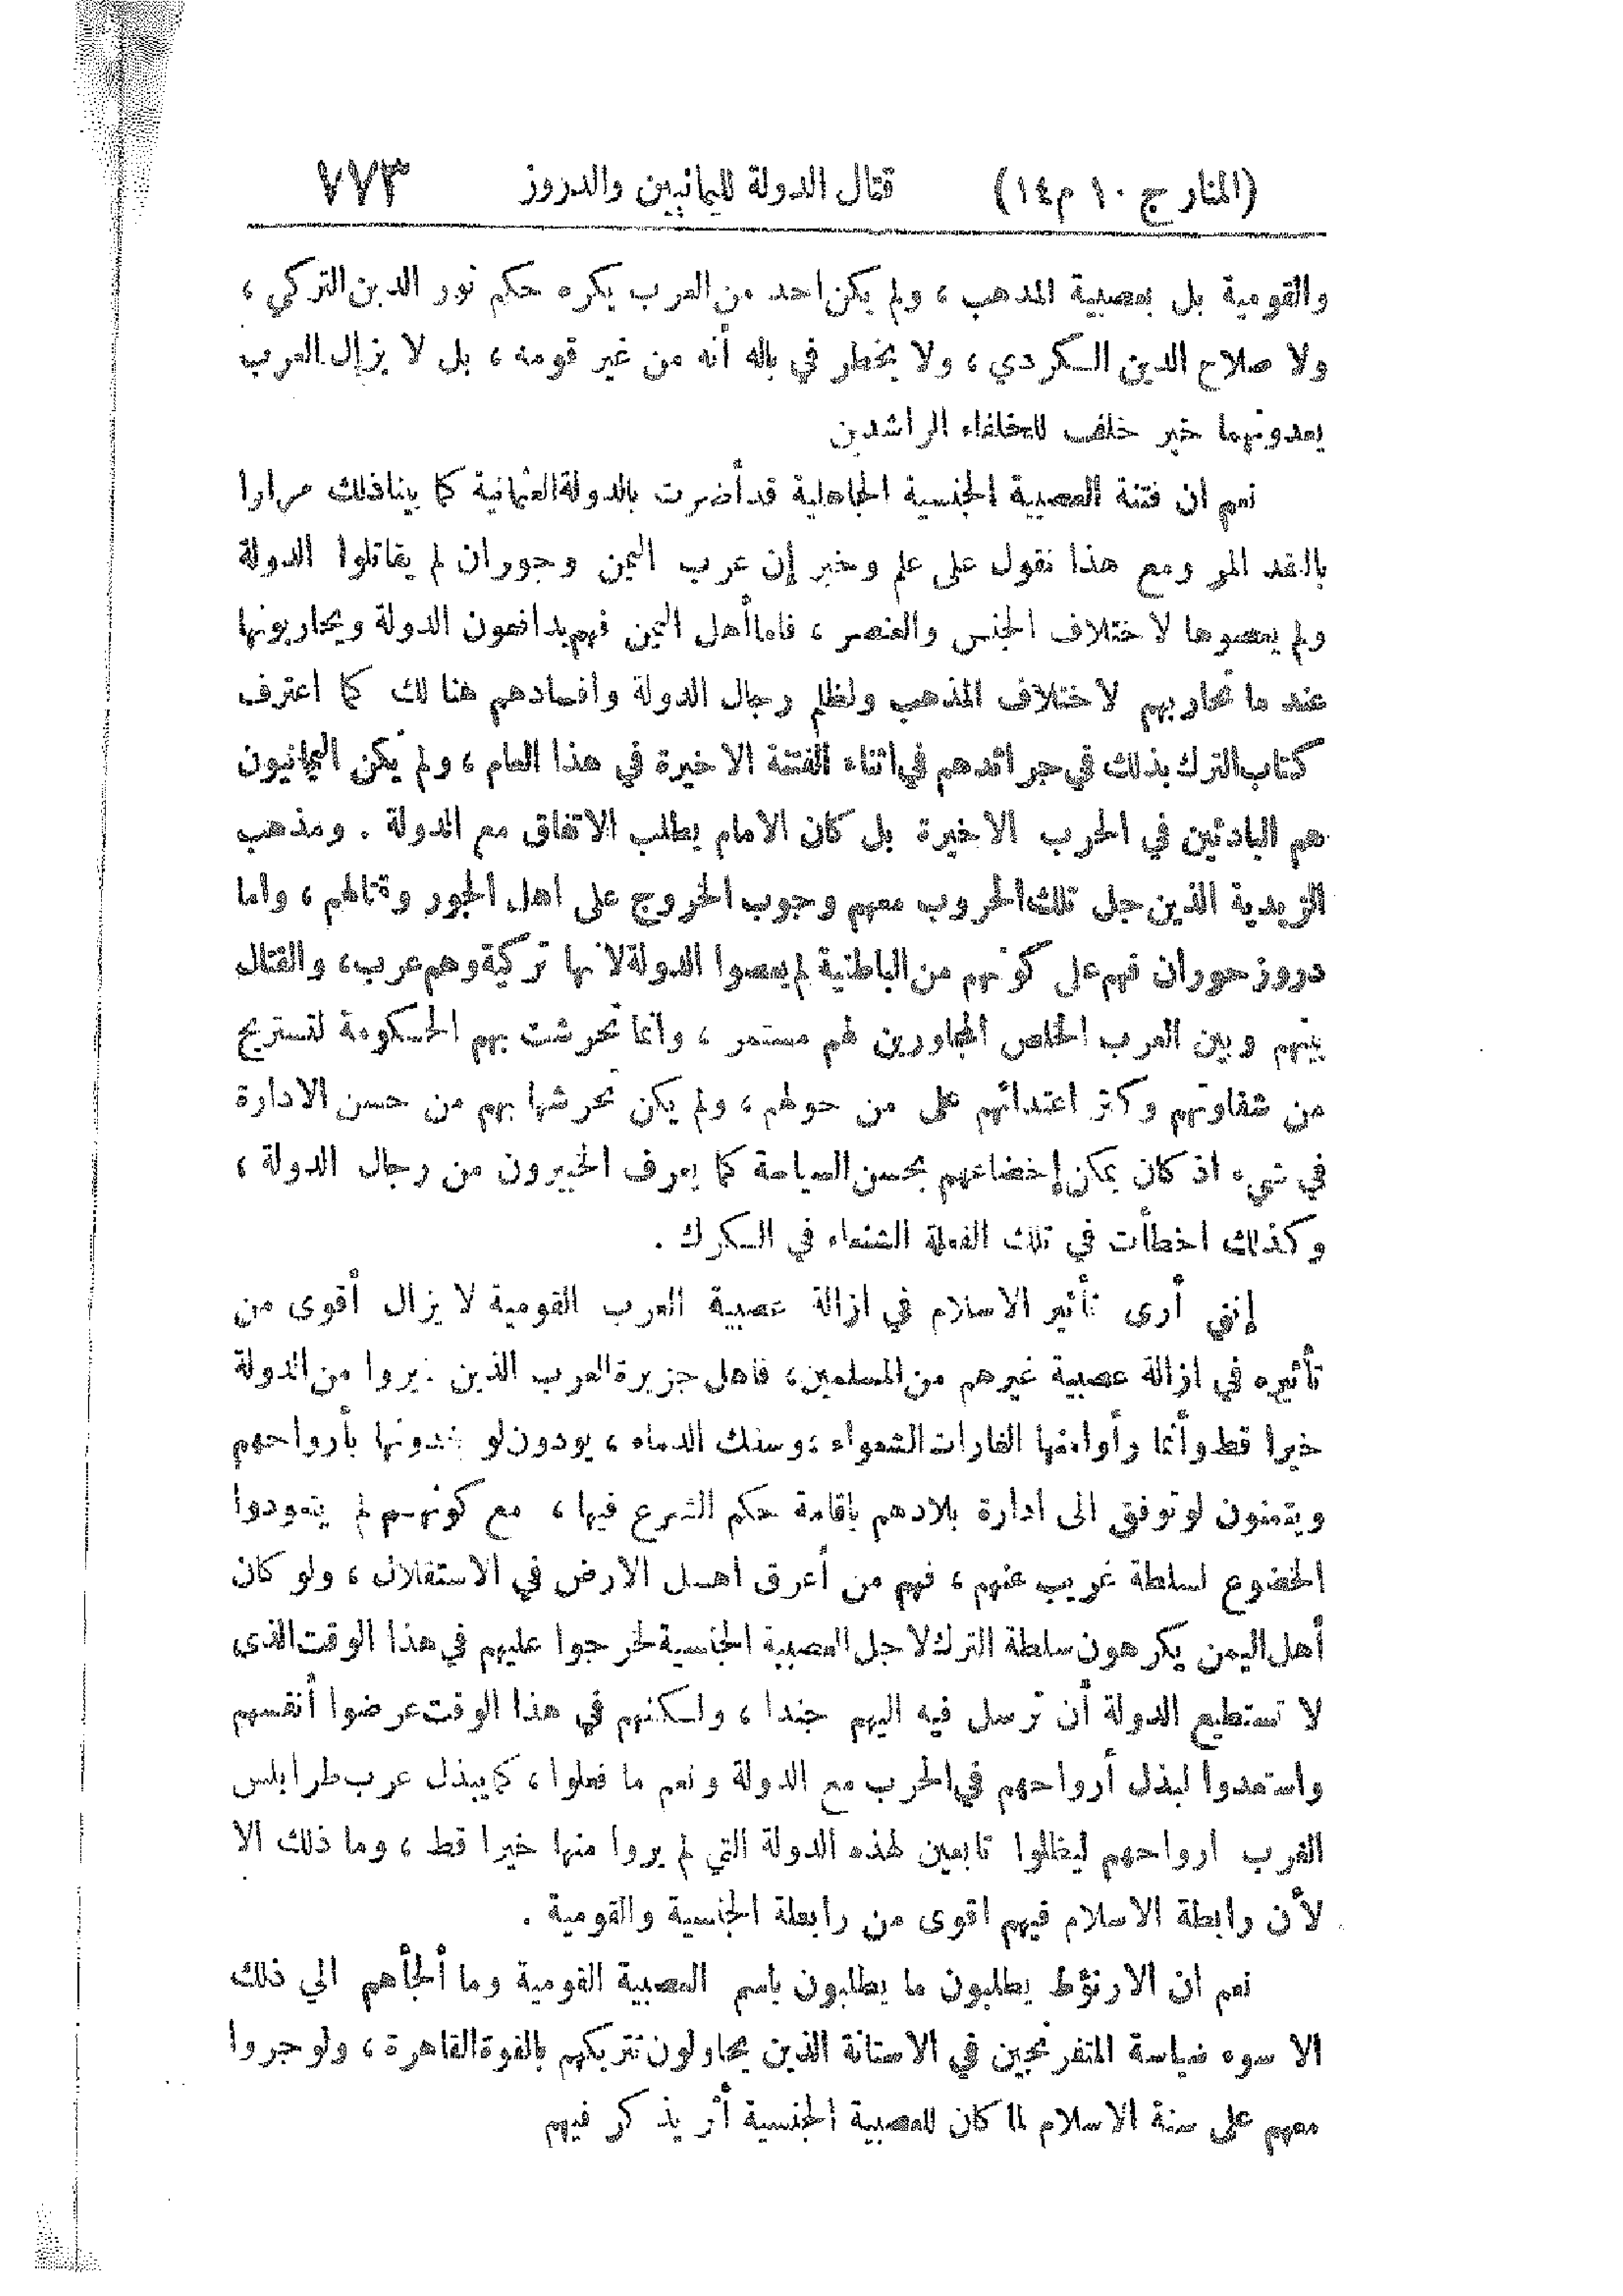 (المنار ج ١٠ م ١٤) قتال الدولة لليمانيين والدروز ٧٧٣
والقومية بل بعصبية المذهب ، ولم يكن احد من العرب يكره حكم نور الدين التركي ،
ولا صلاح الدين الكردي ، ولا يخطر في باله أنه من غير قومه ، بل لا يزال العرب
يعدونهما خير خلف للخلفاء الراشدين
نعم ان فتنة العصبية الجنسية الجاهلية قد أضرت بالدولة العثمانية كما بينا ذلك مرارا
بالنقد المر ومع هذا نقول على علم وخبر إن عرب اليمن وحوران لم يقاتلوا الدولة
ولم يعصوها لاختلاف الجنس والعنصر ، فاما أهل اليمن فهم يدافعون الدولة ويحاربونها
عند ما تحاربهم لاختلاف المذهب ولظلم رجال الدولة وافسادهم هنا لك كما اعترف
كتاب الترك بذلك في جرائدهم في اثناء الفتنة الاخيرة في هذا العام ، ولم يكن اليمانيون
هم البادئين في الحرب الاخيرة بل كان الامام يطلب الاتفاق مع الدولة . ومذهب
الزيدية الذين جل تلك الحروب معهم وجوب الخروج على اهل الجور وقتالهم ، واما
دروز حوران فهم على كونهم من الباطنية لم يعصوا الدولة لانها تركية وهم عرب ، والقتال
بينهم وبين العرب الخلص المجاورين لهم مستمر ، وانما تحرشت بهم الحكومة لتستريح
من شقاوتهم وكثر اعتدائهم على من حولهم ، ولم يكن تحرشها بهم من حسن الادارة
في شيء اذ كان يمكن إخضاعهم بحسن السياسة كما يعرف الخبيرون من رجال الدولة ،
وكذلك اخطأت في تلك الفعلة الشنعاء في الكرك .
إنني أرى تأثير الاسلام في ازالة عصبية العرب القومية لا يزال أقوى من
تأثيره في ازالة عصبية غيرهم من المسلمين ، فاهل جزيرة العرب الذين لم يروا من الدولة
خيرا قط وأنما رأوا منها الغارات الشعواء ، وسفك الدماء ، يودون لو يفدونها بأرواحهم
ويتمنون لو توفق الى ادارة بلادهم باقامة حكم الشرع فيها ، مع كونهم لم يتعودوا
الخضوع لسلطة غريب عنهم ، فهم من أعرق اهل الارض في الاستقلال ، ولو كان
أهل اليمن يكرهون سلطة الترك لاجل العصبية الجنسية لخرجوا عليهم في هذا الوقت الذى
لا تستطيع الدولة أن ترسل فيه اليهم جندا ، ولكنهم في هذا الوقت عرضوا أنفسهم
واستعدوا لبذل أرواحهم في الحرب مع الدولة ونعم ما فعلوا ، كما يبذل عرب طرابلس
الغرب ارواحهم ليظلوا تابعين لهذه الدولة التي لم يروا منها خيرا قط ، وما ذلك الا
لأن رابطة الاسلام فيهم اقوى من رابطة الجنسية والقومية .
نعم ان الارنؤط يطلبون ما يطلبون باسم العصبية القومية وما ألجأهم الي ذلك
الا سوء سياسة المتفرنجين في الاستانة الذين يحاولون تتريكهم بالقوة القاهرة ، ولو جروا
معهم على سنة الاسلام لما كان للعصبية الجنسية أثر يذكر فيهم